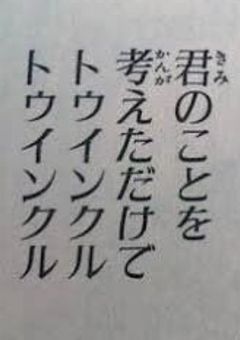 君のことを
考えただけで
トゥインクル
トゥインクル